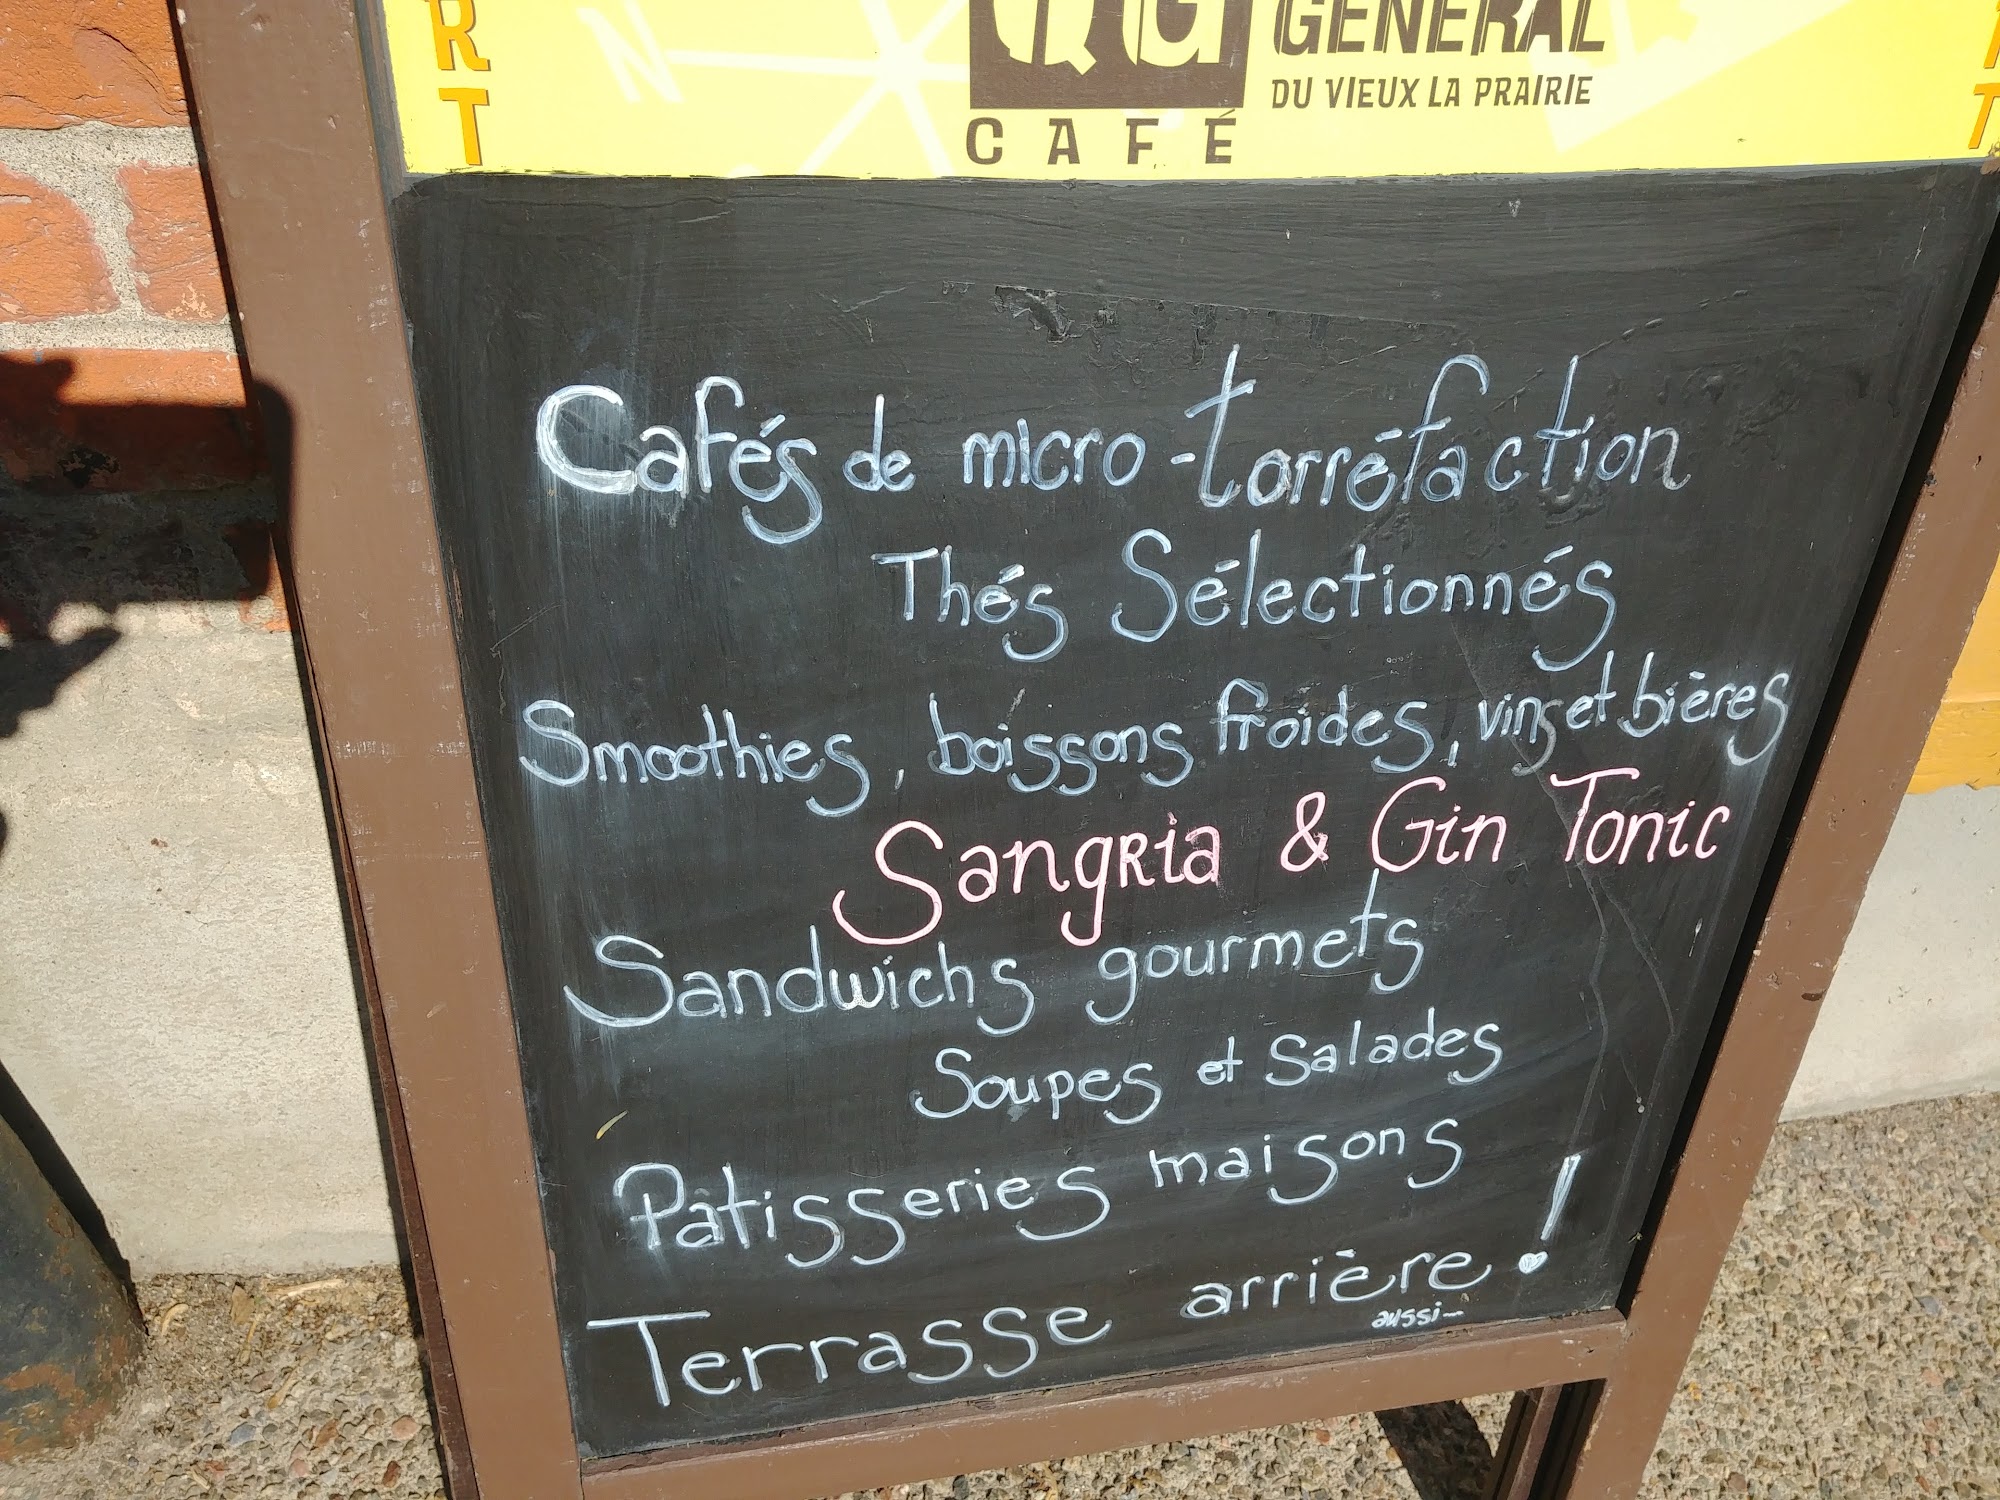 RT
QG
GÉNÉRAL
DU VIEUX LA PRAIRIE
CAFÉ
Cafés de micro-torréfaction
Thés Sélectionnés
Smoothies, boissons froides, vins et bières
Sangria & Gin Tonic
Sandwichs gourmets
Soupes et Salades
Pâtisseries maisons
Terrasse arrière!
aussi